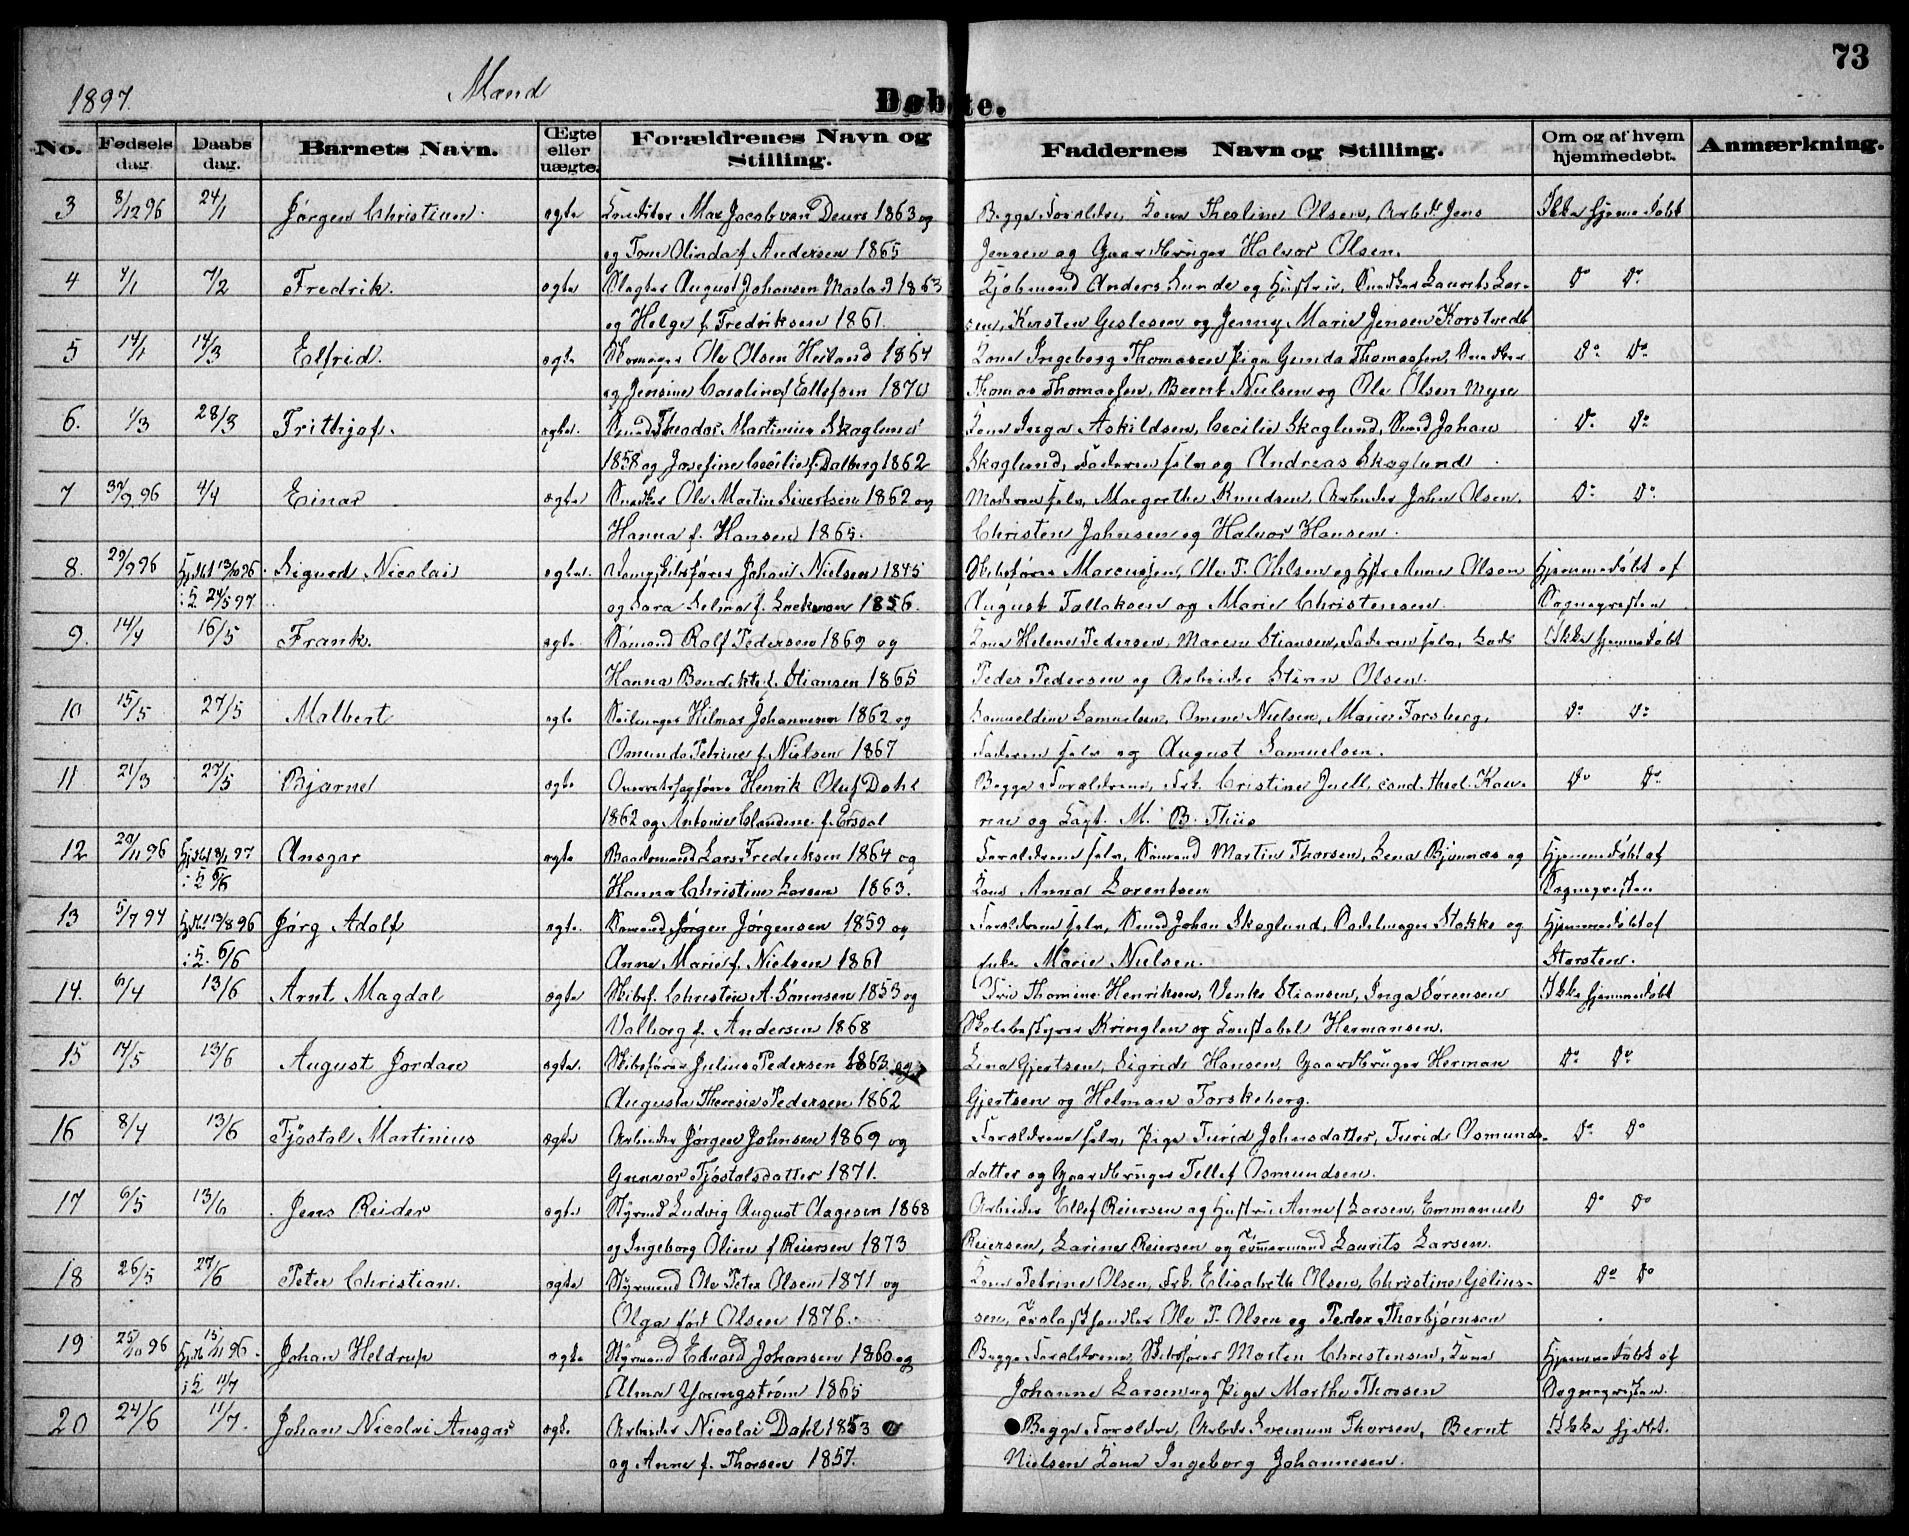 73
1897. Mænd
Døbte.
No. Fødsels dag. Daabs dag. Barnets Navn. Ægte eller uægte. Forældrenes Navn og Stilling. Faddernes Navn og Stilling. Om og af hvem hjemmedøbt. Anmærkning.
3 8/12 96 24/1 Jørgen Christian. ægte Konditor Max Jacob van Deurs 1863 og Begge Forældre, Kone Thealine Olsen, Arbdr Jens Ikke hjemmedøbt
og Tom Olinda f. Andersen 1865 Jensen og Gaardbruger Halvor Olsen.
4 4/1 7/2 Fredrik. ægte Slagter August Johansen 1863 Kjøbmand Anders Lunde og Hustru, Laurits Lar- Do Do
og Helga f. Fredriksen 1861. sen, Karsten Geslesen og Jenny Marie Jensen
5 14/1 14/3 Elfrid. ægte Skomager Ole Olsen Heiland 1864 Kone Ingeborg Thomasen Pige Gunda Thomassen, Do Do
og Jensine Caroline f Ellefsen 1870 Thomas Thomassen, Bernt Nielsen og Ole Olsen Myre
6. 1/3 28/3 Frithjof. ægte. Theodor Martinius Skoglund Kone Inga Askildsen, Cecilie Skoglund, Johan Do Do
1858 og Josefine Cecilie f. Dalberg 1862 Skoglund, Faderen selv og Andreas Skoglund
7 30/9 96 4/4 Einar ægte Snedker Ole Martin Sivertsen 1862 og Moderen selv, Margrethe Knudsen, Arbeider John Olsen, Do Do
Hanna f. Hansen 1865. Christen Johnsen og Halvor Hansen.
8. 29/9 96 Hjdbt 13/10 96. Sigurd Nicolai ægte. Johan Nielsen 1845 Skibsfører Marcussen, Ole T. Ohlsen og Hstr Anne Olsen Hjemmedøbt af
i K 24/5 97 og Sara Selma f. 1856. August Tallaksen og Marie Christensen. Sognepresten
9. 14/4 16/5 Frank. ægte. Sømand Rolf Pedersen 1869 og Kone Helene Pedersen, Maren Stiansen, Faderen selv, Lods Ikke hjemmedøbt
Hanna Bendikte f. Stiansen 1865 Peder Pedersen og Arbeider Stian Olsen.
10 15/5 27/5 Malbert ægte Seilmager Hilmar Johannesen 1862 og Samueldine Samuelsen, Omine Nielsen, Marie Forsberg, Do Do
Omunda Petrine f. Nielsen 1867 Faderen selv og August Samuelsen.
11 21/3 27/5 Bjarne ægte Overretssagfører Henrik Oluf Dahl Begge Forældrene, Frk. Cristine Juell, cand. theol. Kau- Do Do
1862 og Antonie Claudine f. Ersdal rin og Kapt. M. B. Thiis
12 20/11 96 Hjdbt 8/1 97 Ansgar ægte Baadsmand Lars Fredriksen 1864 og Forældrene selv, Sømand Martin Thorsen, Lena Bjønnæs og Hjemmedøbt af
i K 6/6 Hanna Christine Larsen 1863. Kone Anna Lorentsen Sognepresten
13 5/7 94 Hjdbt 13/8 96 Jørg Adolf ægte. Sømand Jørgen Jørgensen 1859 og Forældrene selv, Johan Skoglund, Sadelmager Stokke og Hjemmedøbt af
i K. 6/6 Anne Marie f. Nielsen 1861 Marie Nielsen. Storsten.
14. 6/4 13/6 Arnt Magdal ægte Skibsf. Christen A. Sørensen 1853 og Fru Thomine Henriksen, Venke Stiansen, Inga Sørensen Ikke hjemmedøbt
Valborg f. Andersen 1868 Skolebestyrer Kringlen og Konstabel Hermansen.
15 14/5 13/6 August Jordan ægte. Skibsfører Julius Pedersen 1863 og Lina Gjertsen, Sigrid Hansen, Gaardbruger Herman Do Do
Augusta Theresie Pedersen 1862 Gjertsen og Helman Torskeberg.
16 8/4 13/6 Tjøstol Martinius ægte Arbeider Jørgen Johnsen 1869 og Forældrene selv, Pige Turid Johnsdatter, Turid Osmunds- Do Do
Gunvor Tjøstolsdatter 1871. datter og Gaardbruger Tellef Osmundsen.
17 6/5 13/6 Jens Reider ægte Styrmd Ludvig August Aagesen 1868 Arbeider Ellef Reiersen og Hustru Anne f Larsen, Emmanuel Do Do
og Ingeborg Oline f Reiersen 1873 Reiersen, Larine Reiersen og Tømmermand Laurits Larsen.
18 26/5 27/6 Peter Christian. ægte Styrmand Ole Peter Olsen 1871 og Kone Petrine Olsen, Frk. Elisabeth Olsen, Christine Gjelius- Do Do
Olga født Olsen 1876. sen, Trælasthandler Ole T. Olsen og Peder Thorbjørnsen
19 25/10 96 Hjdb 15/11 96. Johan Heldrup ægte Styrmand Edvard Johansen 1860 og Begge Forældrene, Skibsfører Morten Christensen, Kone Hjemmedøbt af
i K 11/7 Alma Youngstrøm 1865 Johanne Larsen og Pige Marthe Thorsen Sognepresten.
20 24/6 11/7. Johan Nicolai Ansgar ægte. Arbeider Nicolai Dahl 1853 Begge Forældre, Arbdr Svennum Thorsen, Bernt Ikke hjdbt.
og Anne f. Thorsen 1857. Nielsen Kone Ingeborg Johannesen.